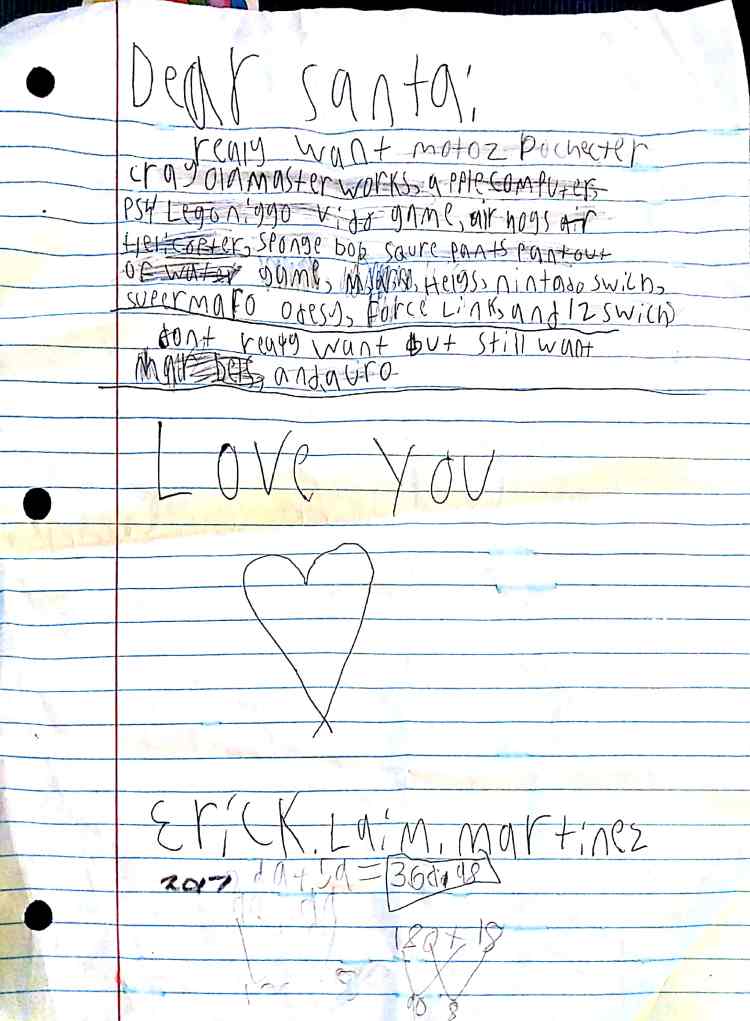 Dear santa:
realy want motoz Pochecter
crayola master works, apple computer,
PS4 Legoniggo vido game, air hogs air
Helicopter, sponge bob saure pants pantout
of water game, Helgs, nintado swich,
supermaro odesy, force Link, and 12 swich
dont realy want but still want
and auro
Love you
Erick. Laim. martinez
2017 = 368.98
120+ 18
90 8